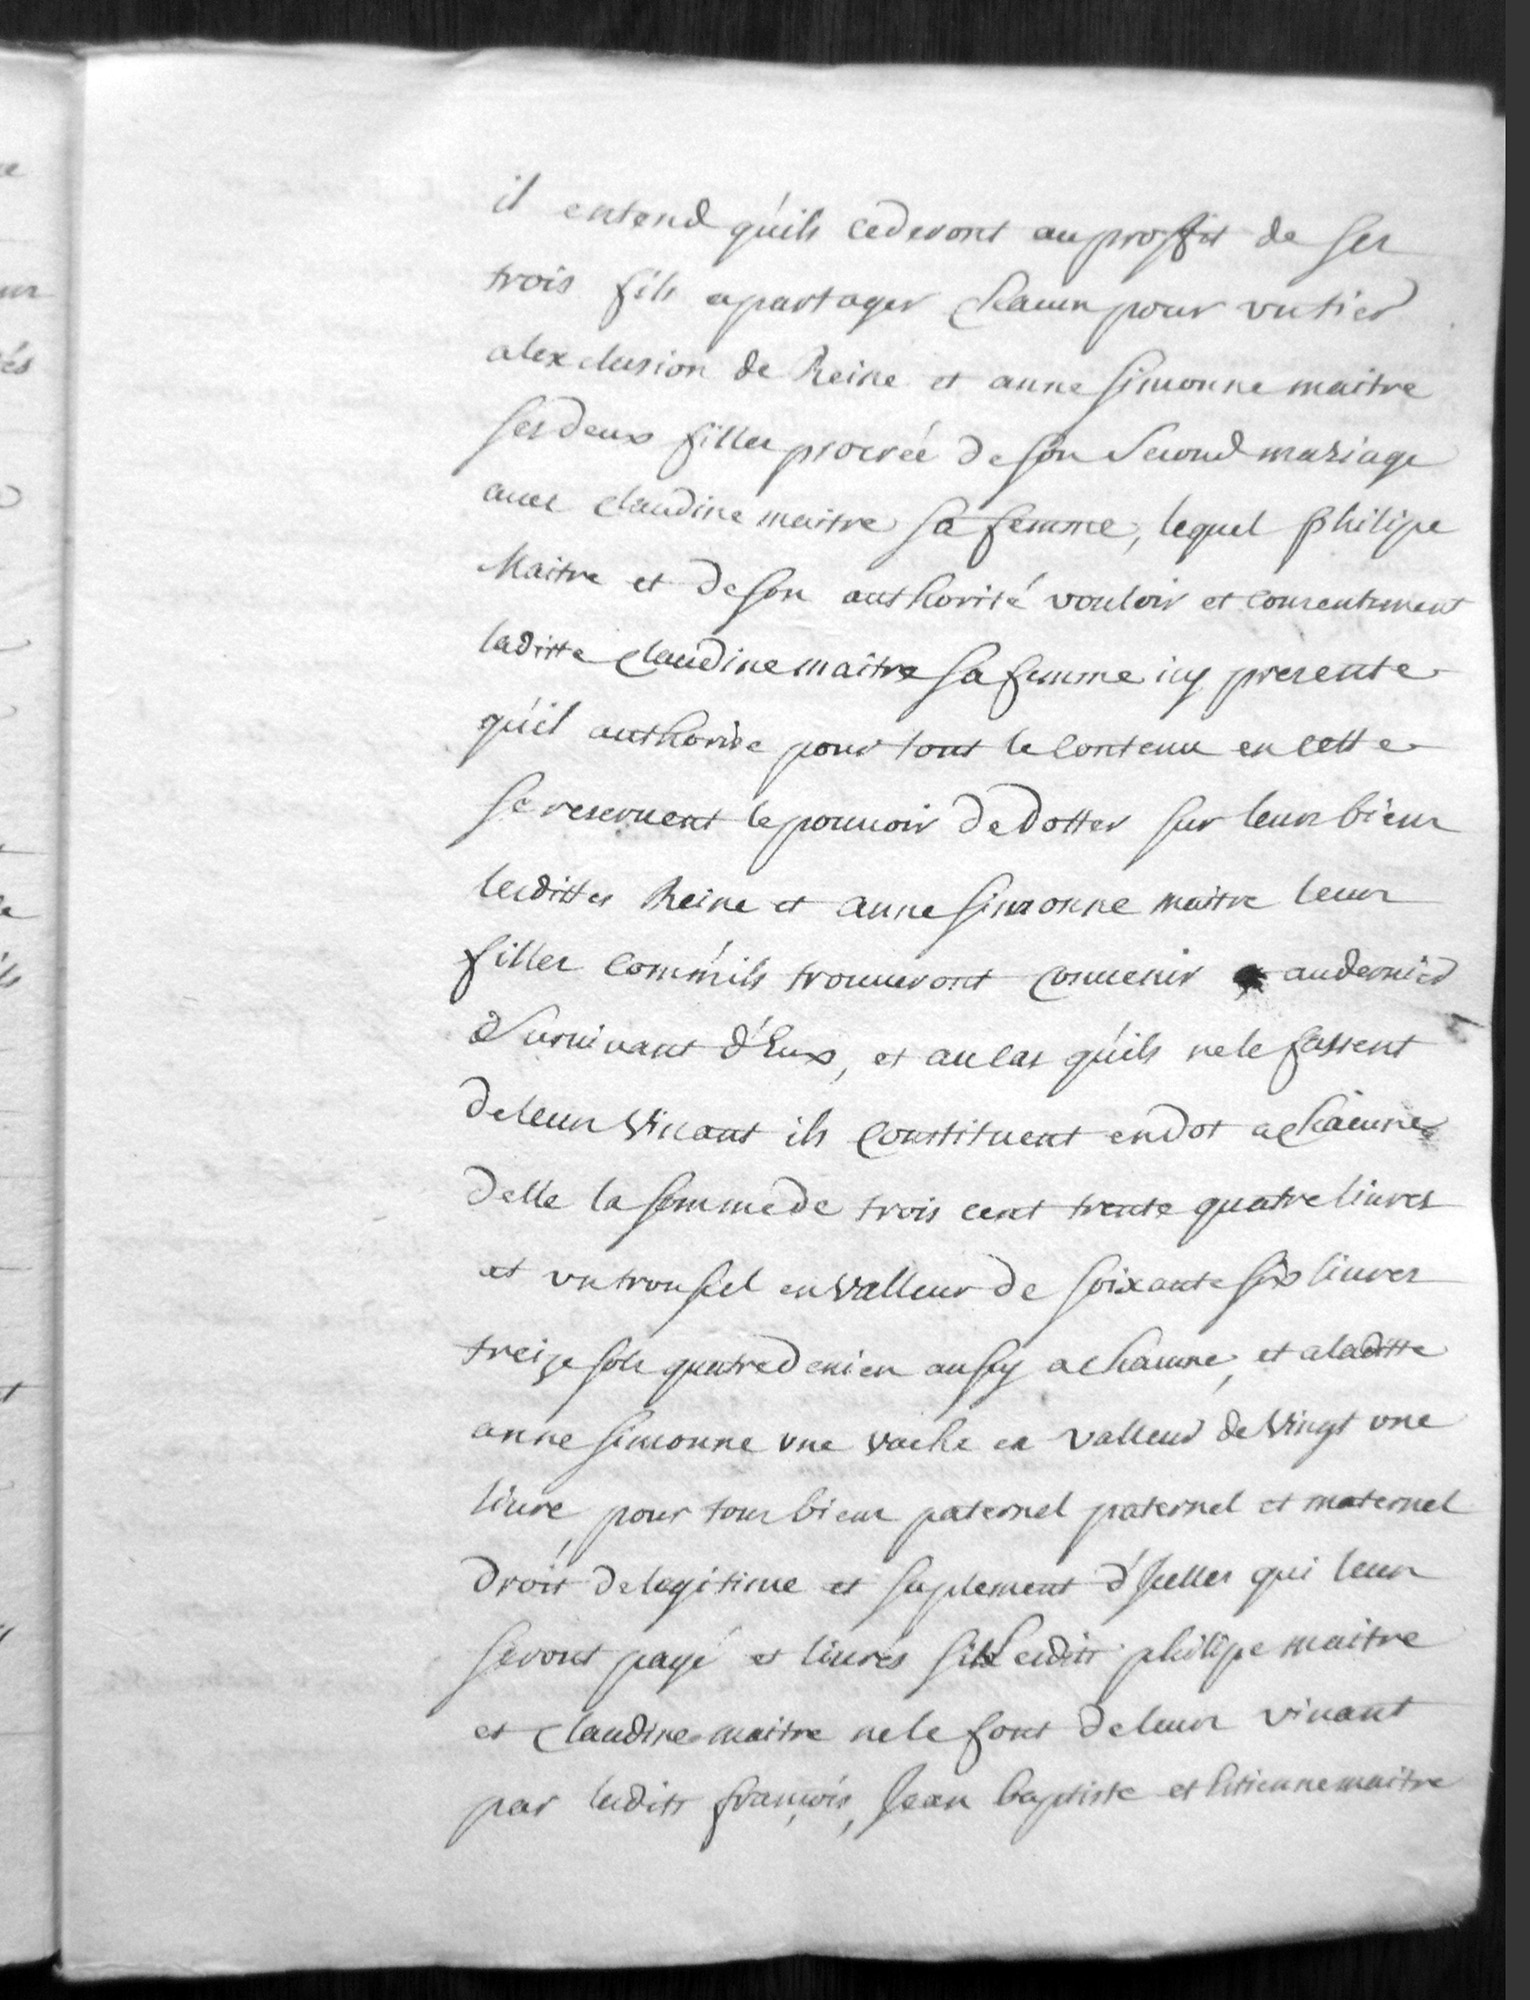 il entend qu'ils cederont au proffit de ses
trois fils a partager chacun pour un tier
a lexclusion de Reine et anne simonne maitre
ses deux filles procréé de son second mariage
avec claudine maitre sa femme, lequel philipe
Maitre et de son authorité vouloir et consentement
laditte claudine maitre sa femme icy presente
qu'il authorise pour tout le contenu en cette
se reservent le pouvoir de dotter sur leurs biens
lesdittes Reine et anne simonne maitre leurs
filles comm'ils trouveront convenir au dernier
survivant d'Eux, et au cas qu'ils ne le fassent
de leur vivant ils constituent en dot a chacune
delle la somme de trois cent trente quatre livres
et un troussel en valleur de soixante six livres
treize sols quatre deniers aussy a chacune, et a laditte
anne simonne une vache en valleur de vingt une
livre, pour tous biens paternel paternel et maternel
droit de legitime et suplement d'Icelles qui leur
seront payé et livrés si lesdits philipe maitre
et claudine maitre ne le font de leur vivant
par lesdits françois, Jean baptiste et Etienne maitre